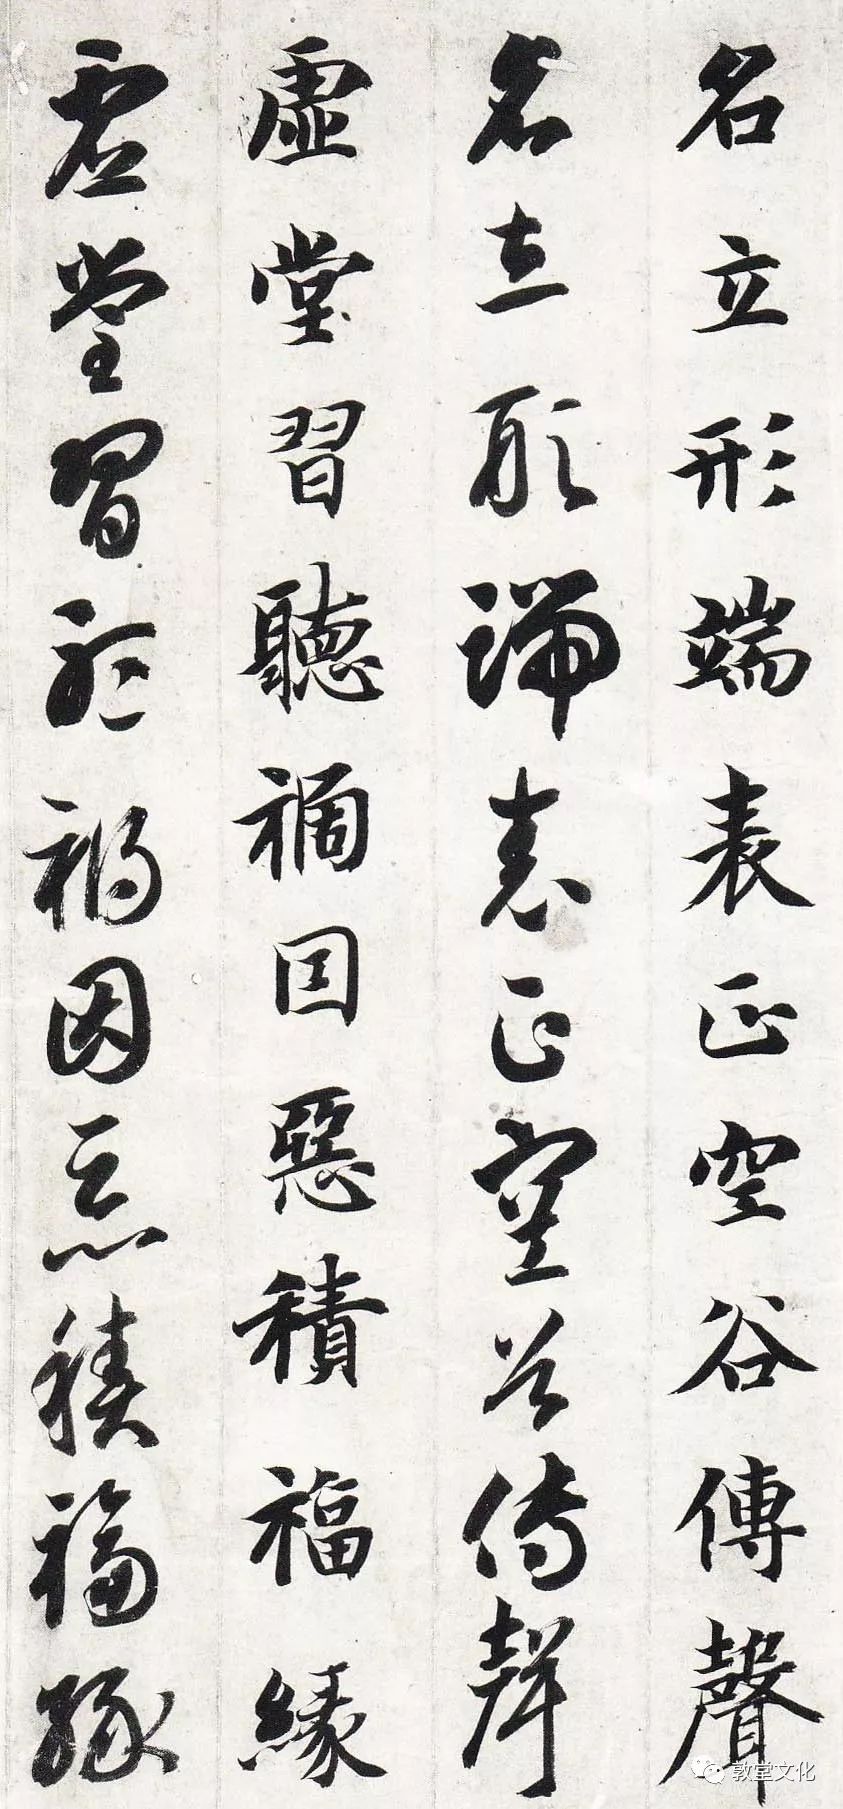 名立形端表正空谷傳聲
名立形端表正空谷傳聲
虛堂習聽禍因惡積福緣
虛堂習聽禍因惡積福緣
敦堂文化